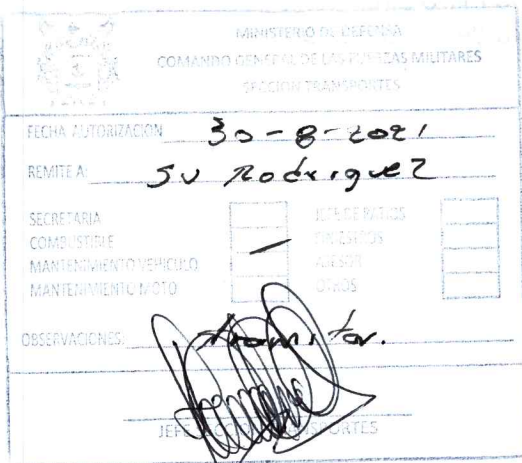 MINISTERIO DE DEFENSA
COMANDO GENERAL DE LAS FUERZAS MILITARES
SECCION TRANSPORTES
FECHA AUTORIZACION 30-8-2021
REMITE A: SV Rodriguez
SECRETARIA
JEFE DE PATIOS
COMBUSTIBLE
MANTENIMIENTO VEHICULO
ASESOR
MANTENIMIENTO MOTO
OTROS
OBSERVACIONES: tramitar.
JEFE SECCION TRANSPORTES